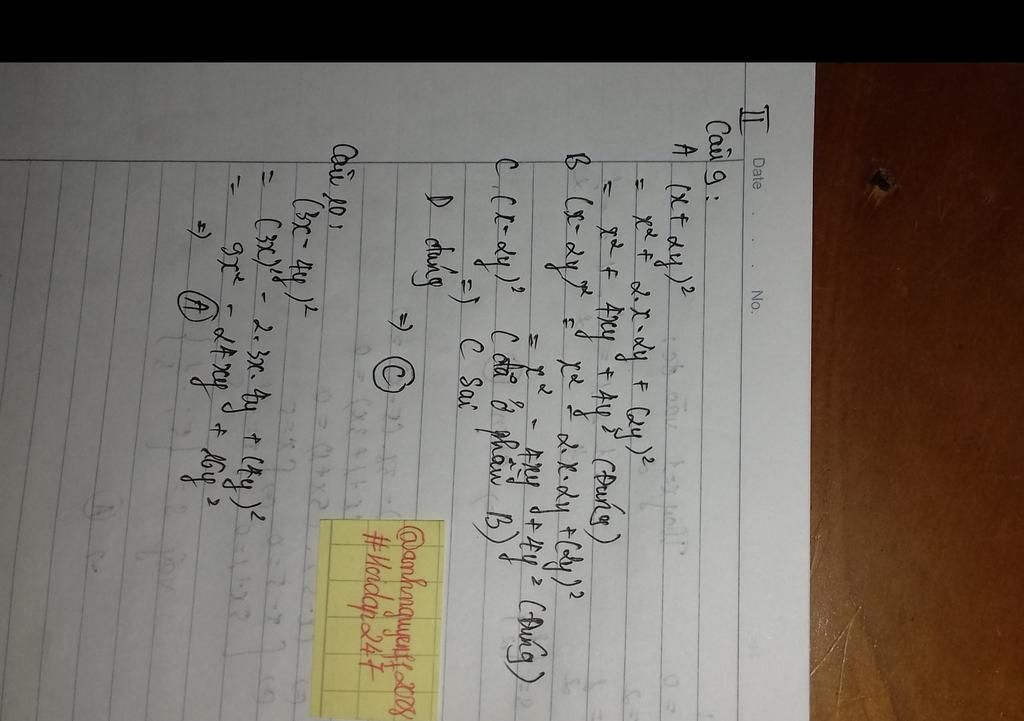 Date . . . No.
II
Câu 9:
A (x + 2y)²
= x² + 2.x.2y + (2y)²
= x² + 4xy + 4y² (Đúng)
B (x - 2y)² = x² - 2.x.2y + (2y)²
= x² - 4xy + 4y² (Đúng)
C, (x - 2y)² (đã ở phần B)
=) C sai
D đúng
=) C
Câu 10:
(3x - 4y)²
= (3x)² - 2.3x.4y + (4y)²
= 9x² - 24xy + 16y²
=) A
@anhnguyenff2008
#Hoidap247